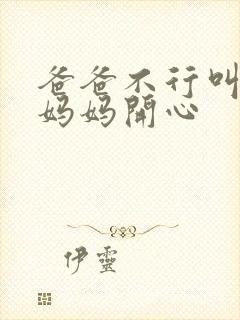 爸爸不行叫
妈妈開心
伊靈